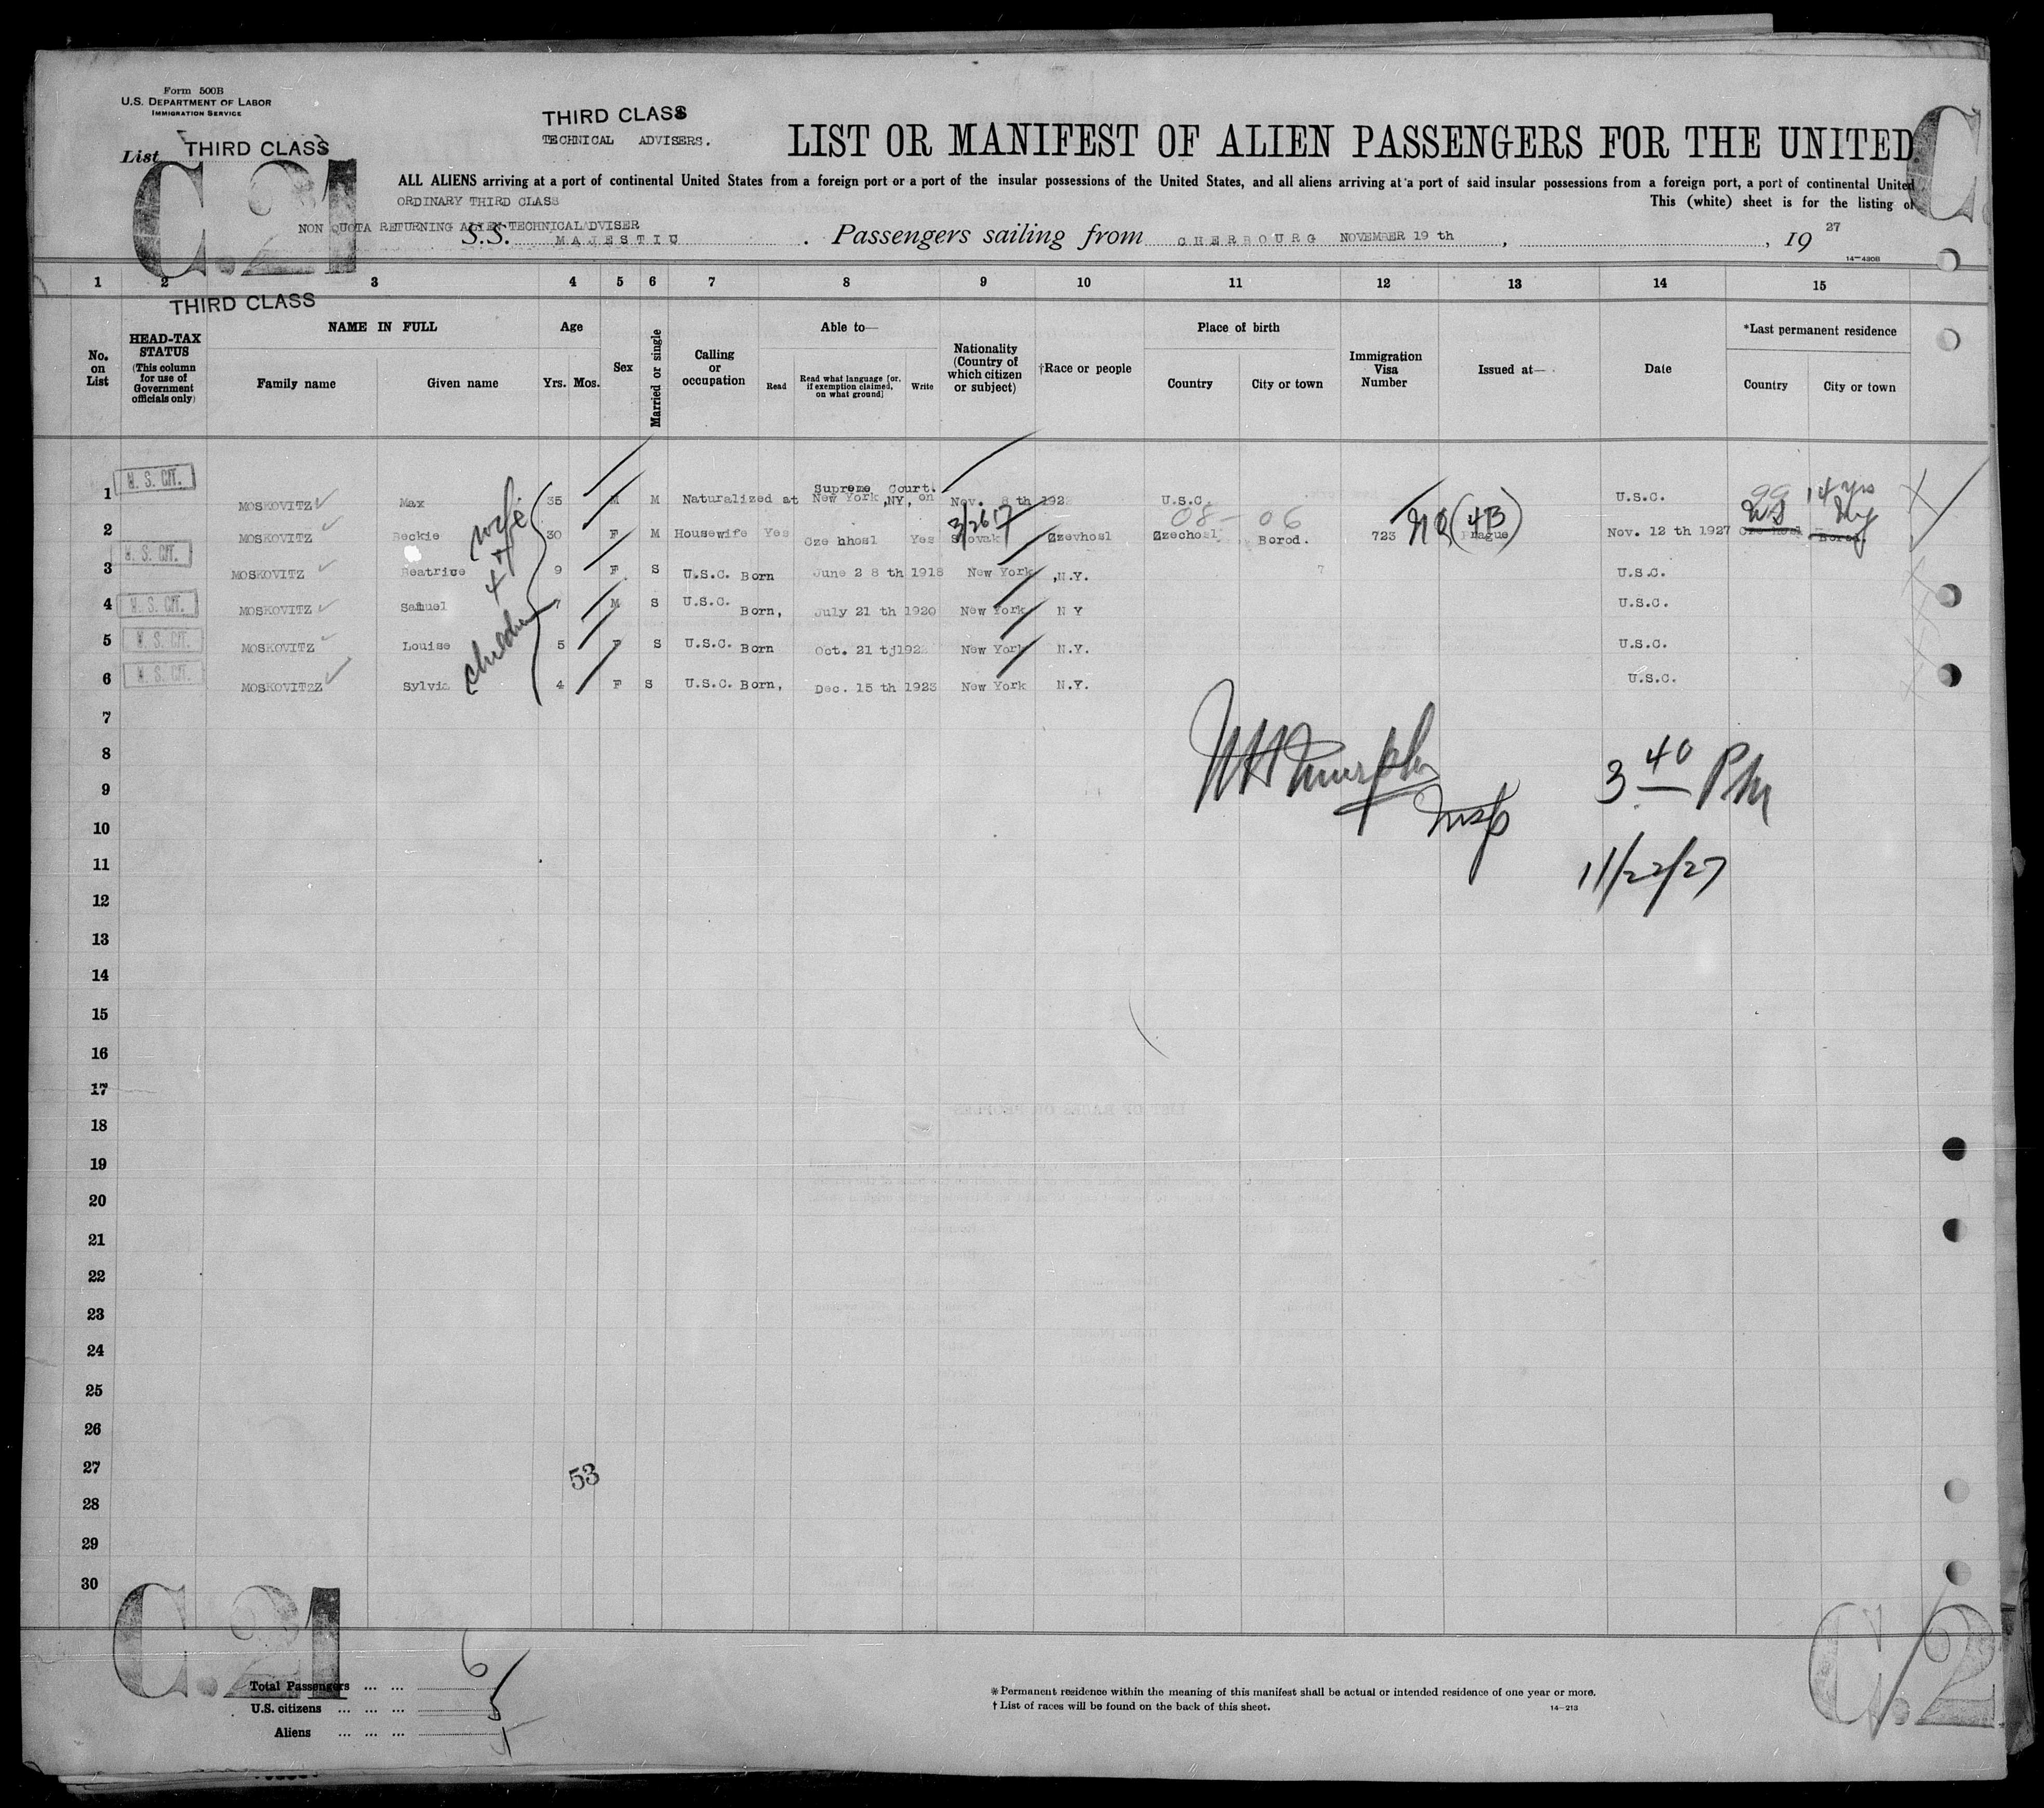 Form 500B
U.S. DEPARTMENT OF LABOR
IMMIGRATION SERVICE
List THIRD CLASS
C.21
THIRD CLASS
TECHNICAL ADVISERS.
LIST OR MANIFEST OF ALIEN PASSENGERS FOR THE UNITED
C.
ALL ALIENS arriving at a port of continental United States from a foreign port or a port of the insular possessions of the United States, and all aliens arriving at a port of said insular possessions from a foreign port, a port of continental United
ORDINARY THIRD CLASS
This (white) sheet is for the listing of
NON QUOTA RETURNING ALIEN TECHNICALADVISER
S.S. MAJESTIC . Passengers sailing from CHERBOURG NOVEMBER 19 th , , 1927
14—430B
1 2 3 4 5 6 7 8 9 10 11 12 13 14 15
THIRD CLASS
No. on List
HEAD-TAX STATUS (This column for use of Government officials only)
NAME IN FULL
Family name Given name
Age
Yrs. Mos.
Sex
Married or single
Calling or occupation
Able to—
Read
Read what language [or, if exemption claimed, on what ground]
Write
Nationality (Country of which citizen or subject)
†Race or people
Place of birth
Country City or town
Immigration Visa Number
Issued at—
Date
*Last permanent residence
Country City or town
1 U. S. CIT. MOSKOVITZ Max 35 M M Naturalized at Supreme Court. New York ,NY, on Nov. 8 th 1922 U.S.C. U.S.C. 99 14 yrs
wife + 4 children
2 MOSKOVITZ Beckie 30 F M Housewife Yes Cze hhosl Yes Slovak Czevhosl Czechosl Borod. 723 Prague Nov. 12 th 1927 Cze hosl Borod.
3/26 17
08 — 06
NQ (4B)
US NY
3 U. S. CIT. MOSKOVITZ Beatrice 9 F S U.S.C. Born June 2 8 th 1918 New York ,N.Y. 7 U.S.C.
4 U. S. CIT. MOSKOVITZ Samuel 7 M S U.S.C. Born, July 21 th 1920 New York N Y U.S.C.
5 U. S. CIT. MOSKOVITZ Louise 5 F S U.S.C. Born Oct. 21 tj192 New York N.Y. U.S.C.
6 U. S. CIT. MOSKOVITZZ Sylvia 4 F S U.S.C. Born, Dec. 15 th 1923 New York N.Y. U.S.C.
7
8
9
10
11
12
13
14
15
16
17
18
19
20
21
22
23
24
25
26
27
28
29
30
Murphy
Insp
3 40 PM
11/22/27
53
C.21
C.2
Total Passengers ... ... 6
U.S. citizens ... ... ... 5
Aliens ... ... ... 1
* Permanent residence within the meaning of this manifest shall be actual or intended residence of one year or more.
† List of races will be found on the back of this sheet.
14—213